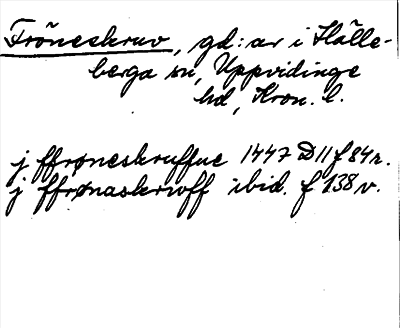 Fröneskruv, gd:ar i Hälle-
berga sn, Uppvidinge
hd, Kron. l.
j ffrøneskruffue 1447 D 11 f 84 r.
j ffrønaskrwff ibid. f 138 v.